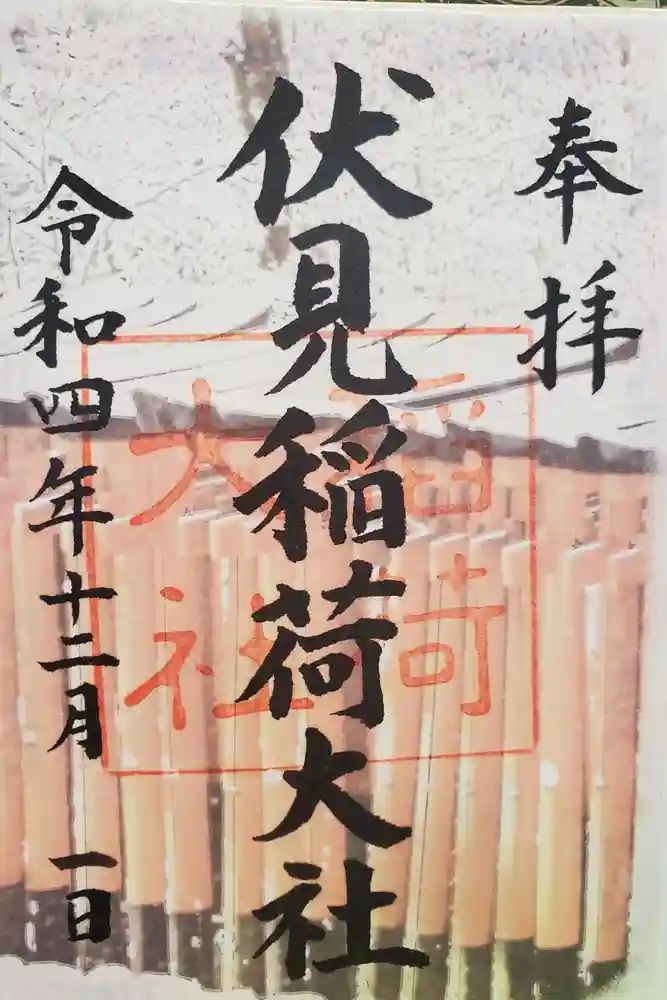 奉拝
伏見稲荷大社
稲荷
大社
令和四年十二月一日